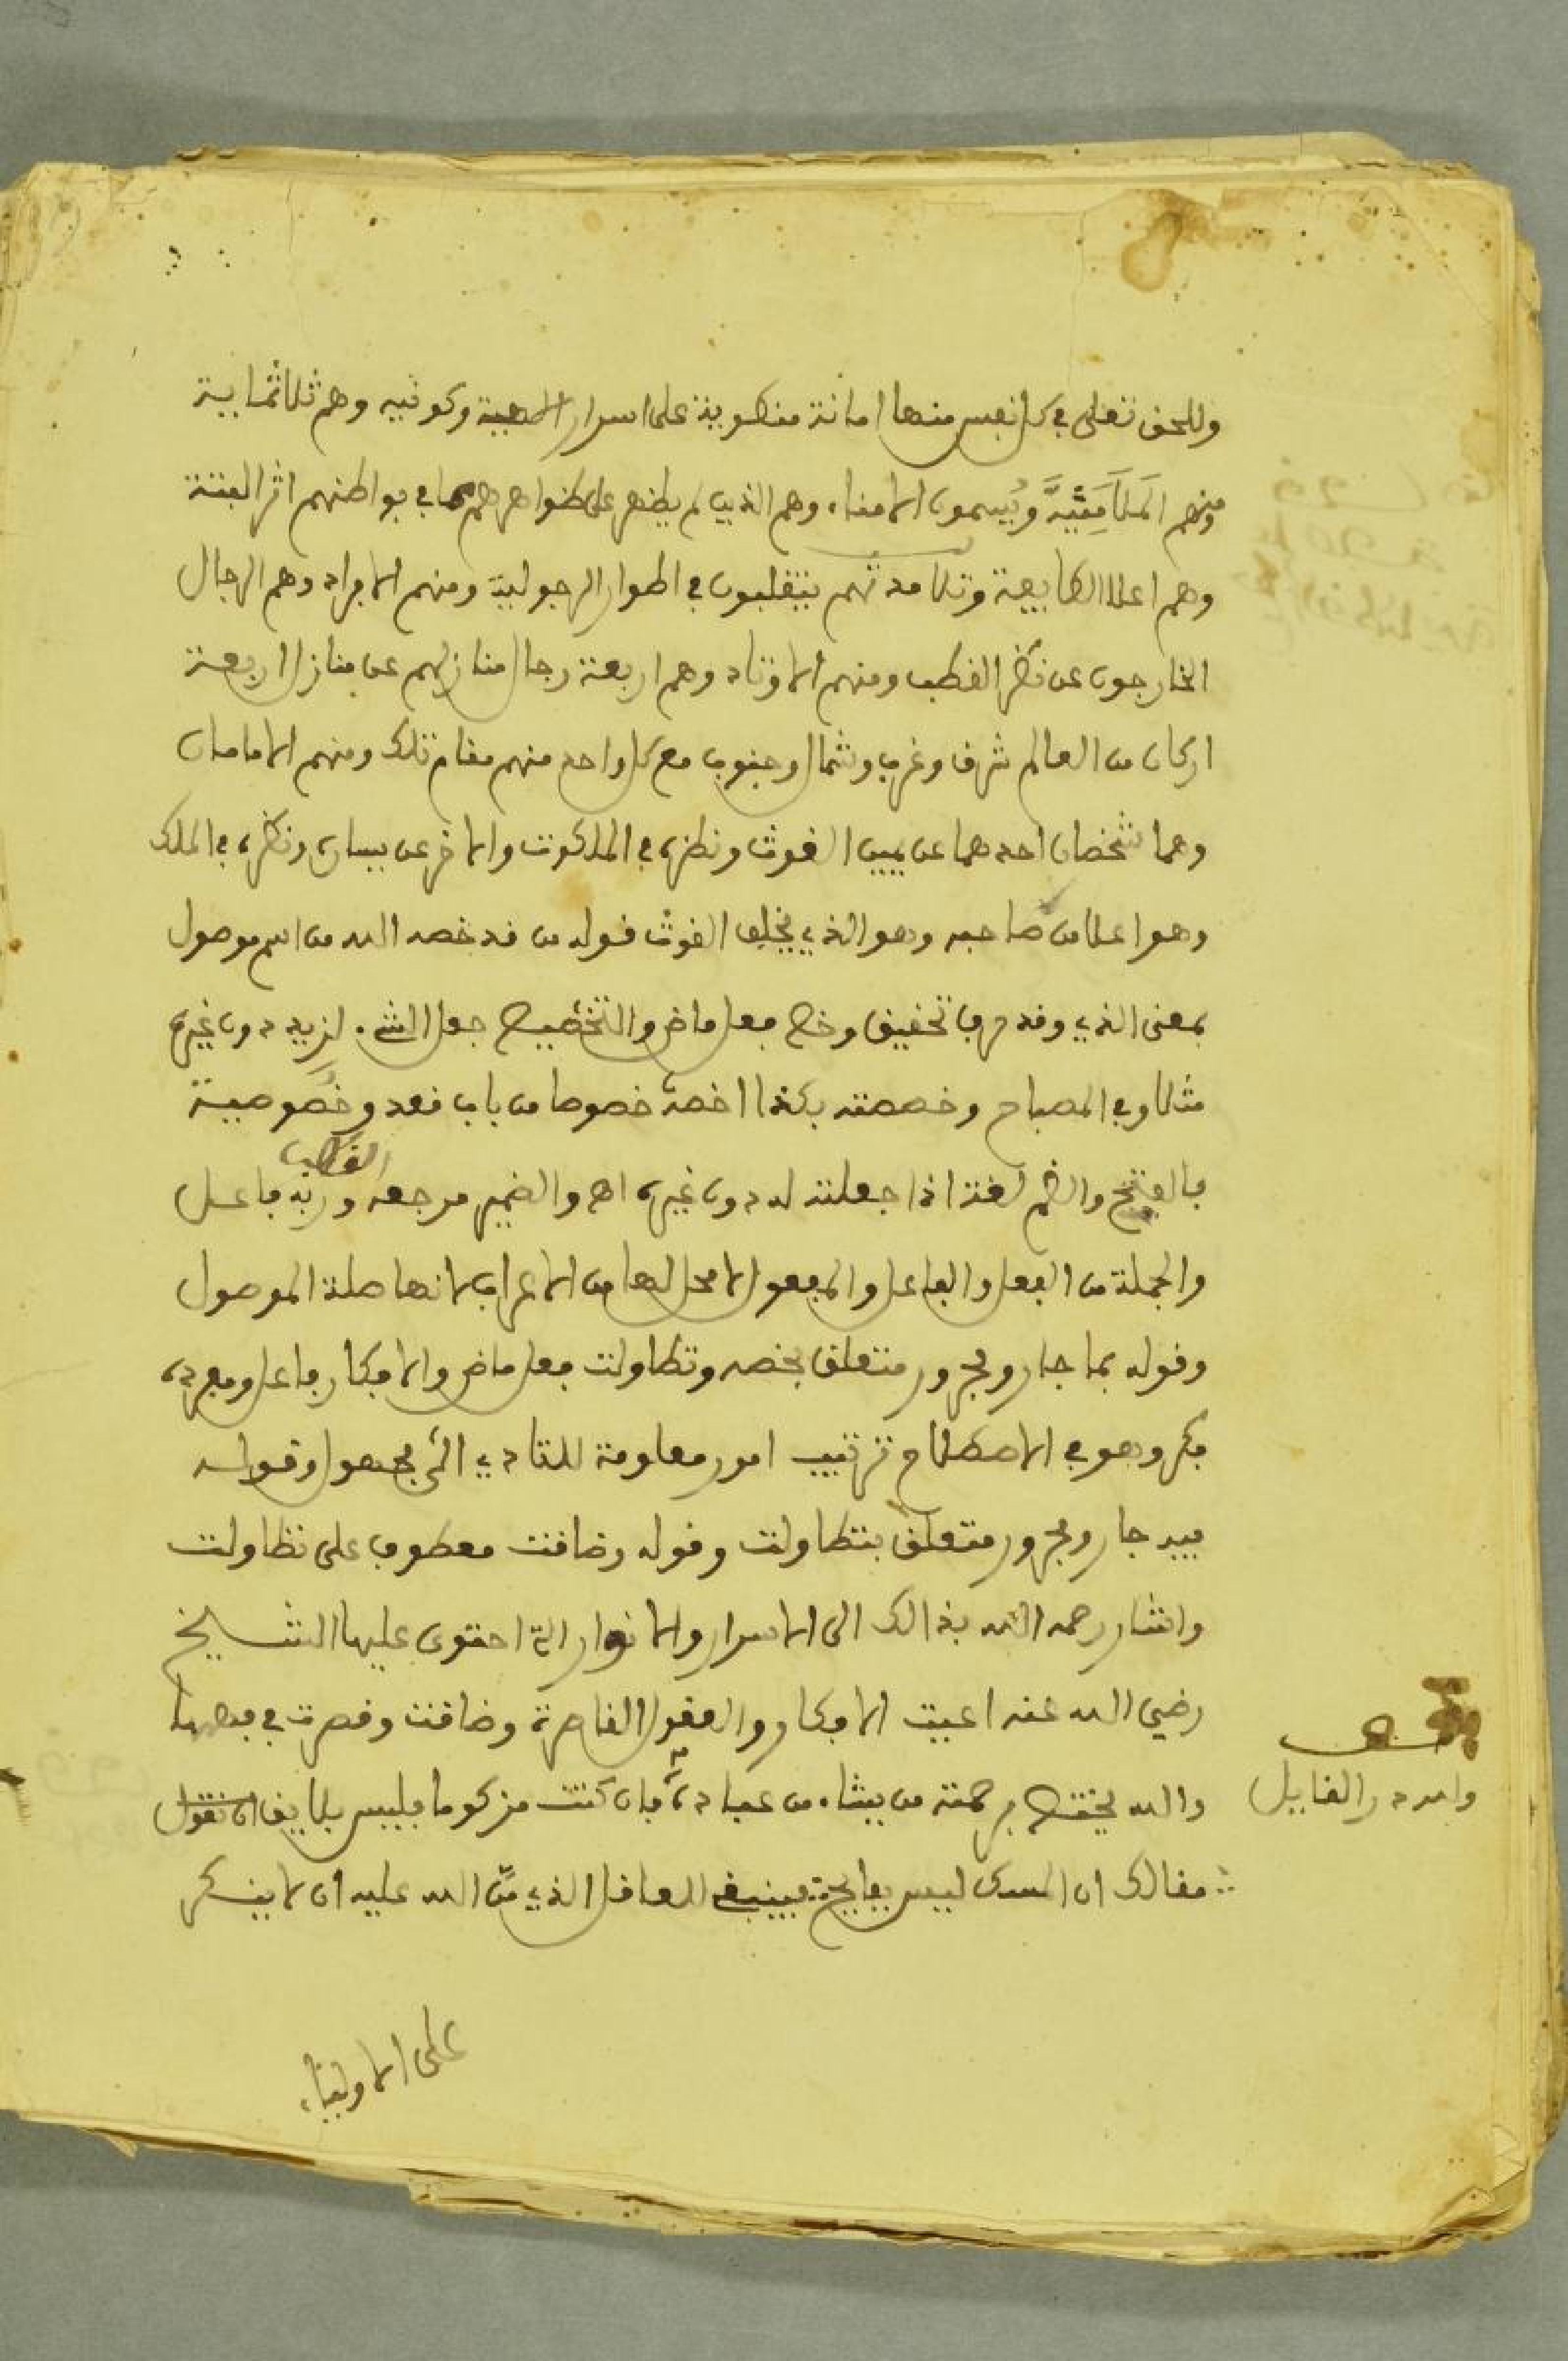 وللحق تعلى في كل نفس منها امانة منطوية على اسرار الهية وكونيه وهم ثلاثماية
ومنهم المَلَامَتِيَّة وَيُسمون الامناء وهم الذين لم يظهر على ظواهرهم مما في بواطنهم اثر البتة
وهم اعلا الطايفة وتلامذتهم يتقلبون في اطوار الرجولية ومنهم الافراد وهم الرجال
الخارجون عن نظر القطب ومنهم الاوتاد وهم اربعة رجال منازلهم عن منازل اربعة
اركان من العالم شرق وغرب وشمال وجنوب مع كل واحد منهم مقام تلك ومنهم الامامان
وهما شخصان احدهما عن يمين الغوث ونظره في الملكوت والاخر عن يساره ونظره في الملك
وهو اعلا من صاحبه وهو الذي يخلف الغوث قوله من قد خصه الله من اسم موصول
بمعنى الذي وقد حرف تحقيق وخص فعل ماض والتخصيص جعل الشيء لزيد دون غيره
مثلا وفي المصباح وخصصته بكذا اخصه خصوصا من باب قعد وخصوصية
بالفتح والضم لغة اذا جعلته له دون غيره اه والضمير مرجعه القطب وربه فاعل
والجملة من الفعل والفاعل والمفعول لا محل لها من الاعراب لانها صلة الموصول
وقوله بما جار ومجرور متعلق بخصه وتطاولت فعل ماض والافكار فاعل ومفرده
فكر وهو في الاصطلاح ترتيب امور معلومة للتادي الى مجهول وقوله
فيه جار ومجرور متعلق بتطاولت وقوله وضاقت معطوف على تطاولت
واشار رحمه الله بذالك الى الاسرار والانوار التي احتوى عليها الشيخ
رضي الله عنه اعيت الافكار والعقول القاصرة وضاقت وقصرت في فهمها
والله يختص برحمته من يشاء من عباده فان كنت مزكوما فليس بلايق ان تقول
مقالك ان المسك ليس بفايح فينبغي للعاقل الذي منّ الله عليه ان لا ينكر
ولله در القايل
على الاولياء